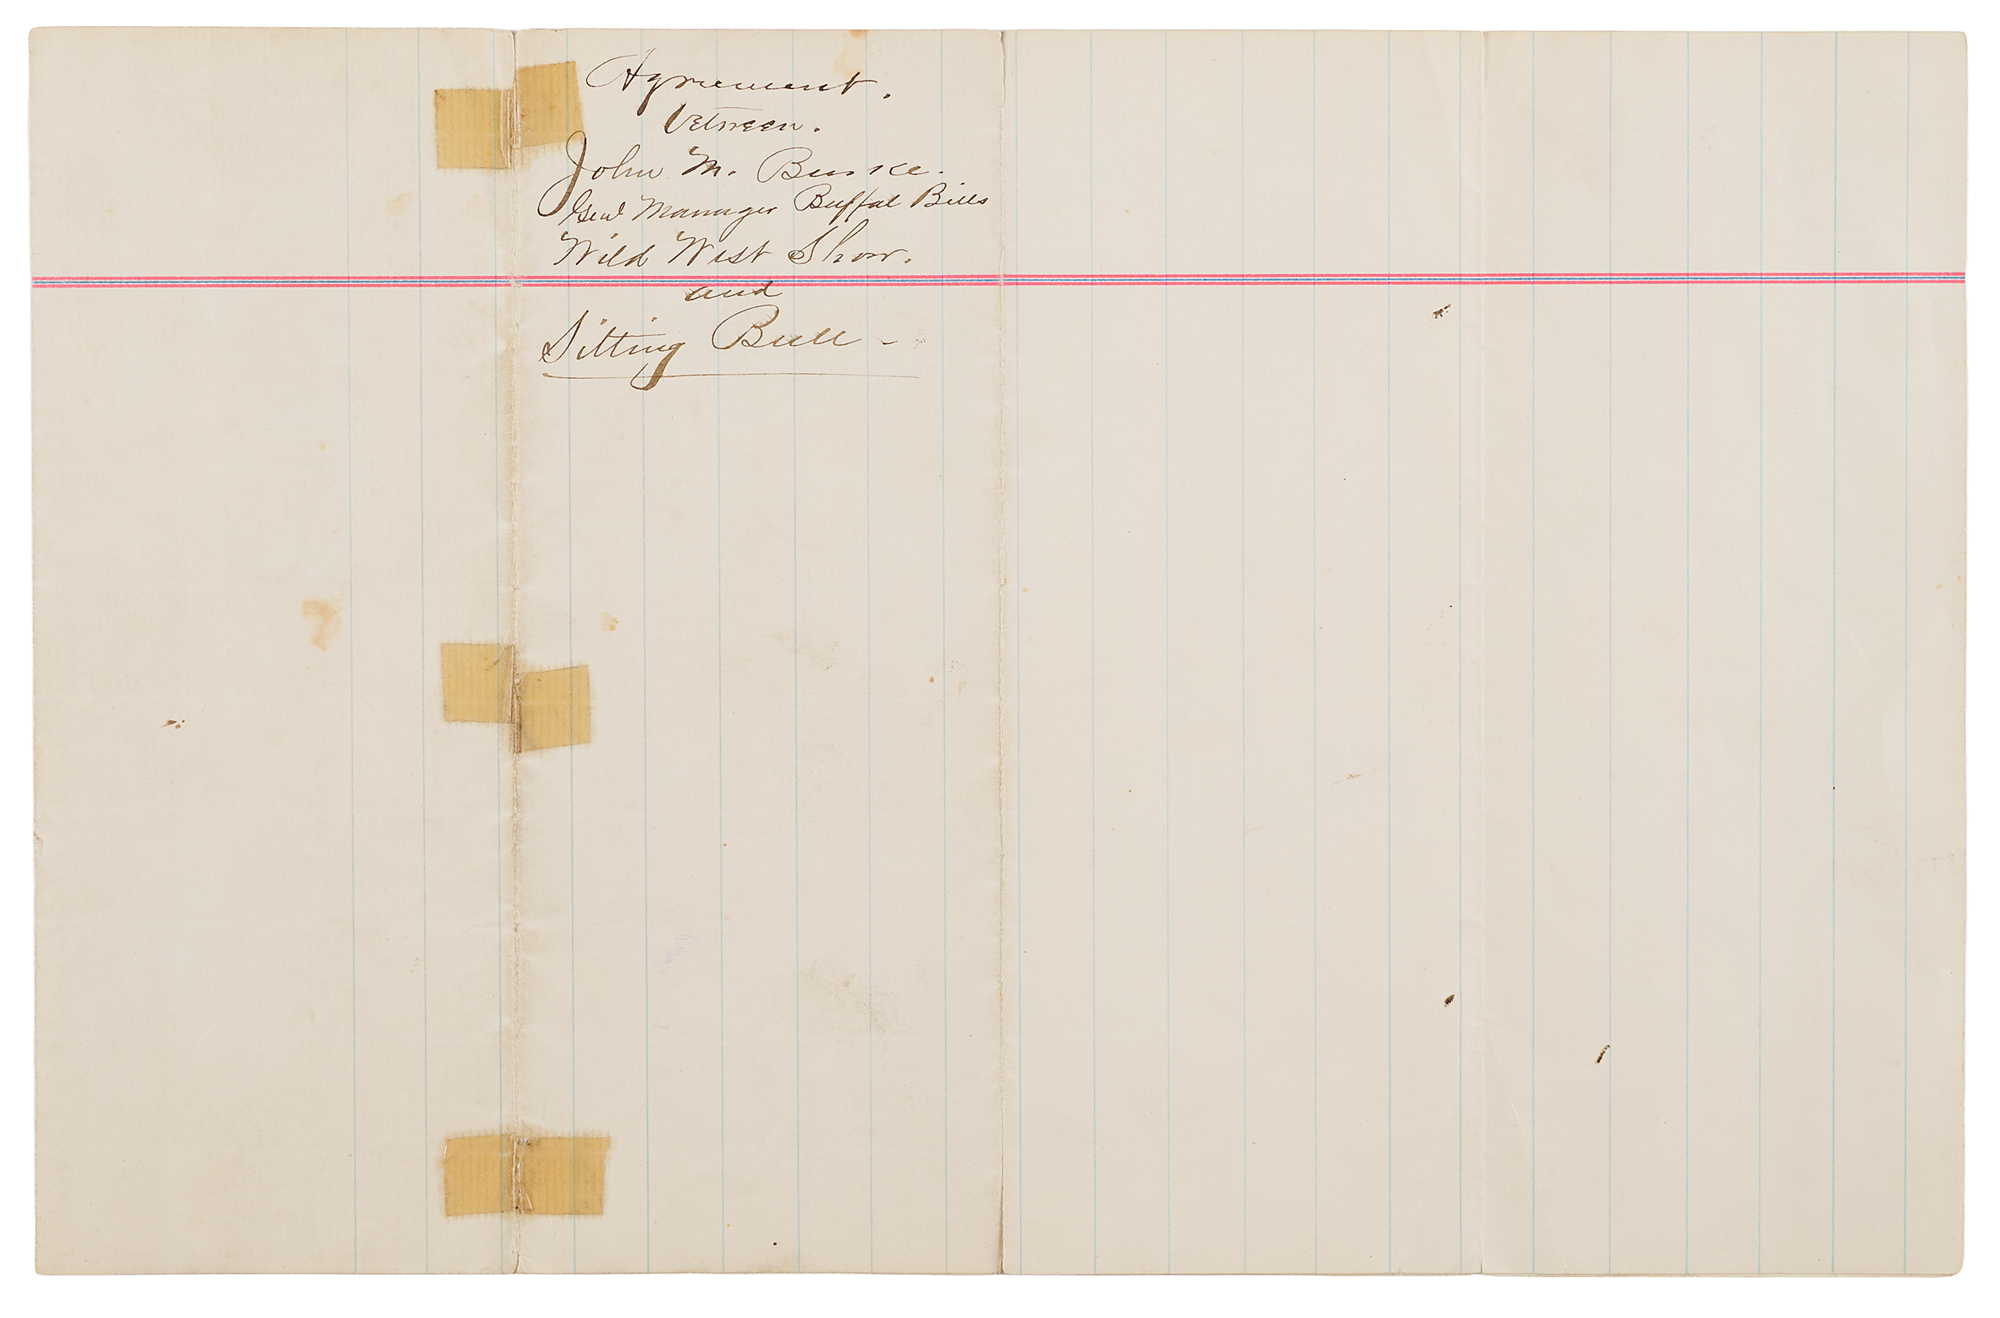 Agreement.
between.
John M. Burke.
Genl Manager Buffal Bills
Wild West Show.
and
Sitting Bull -